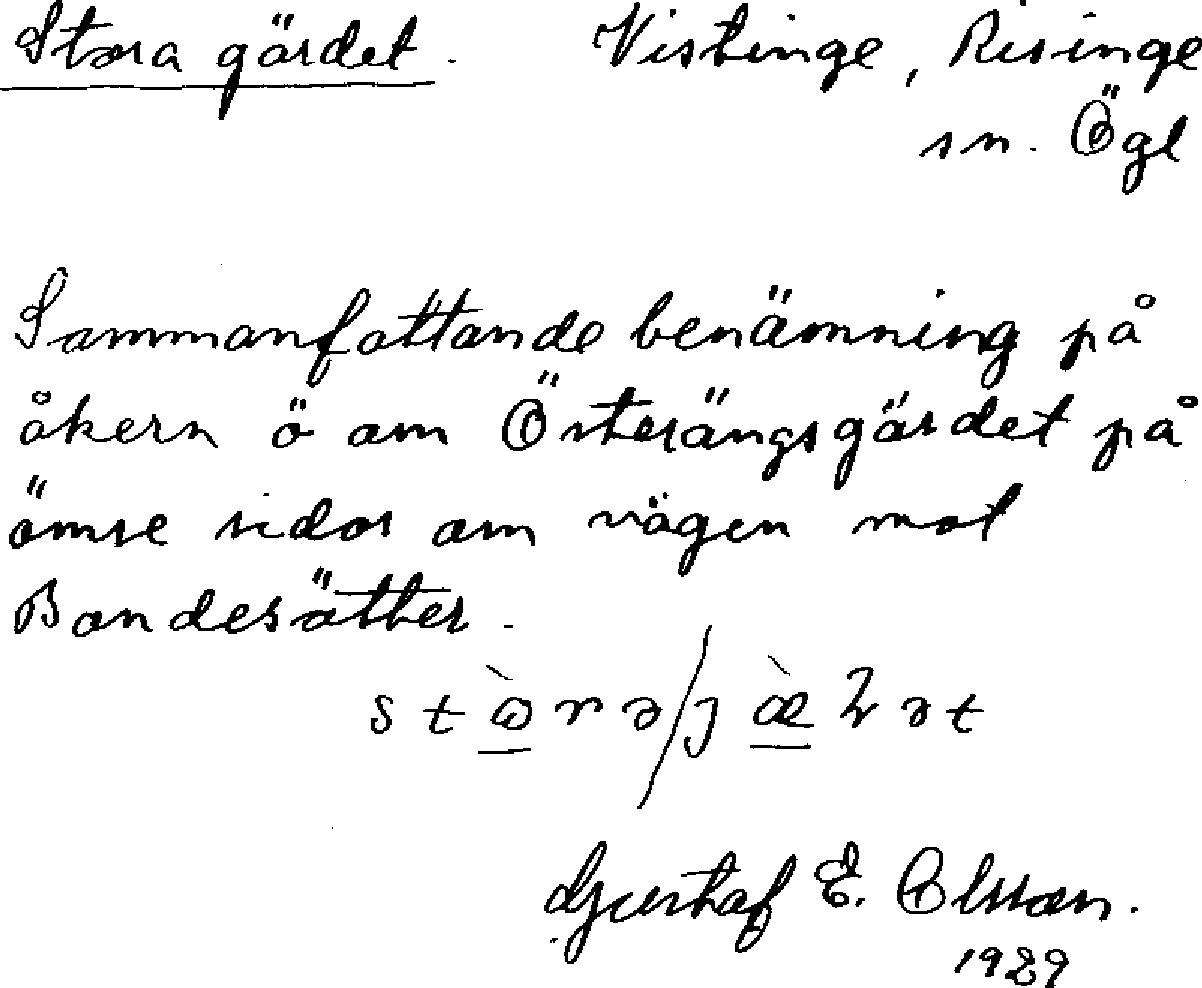 Stora gärdet. Vistinge, Risinge
sn. Ögl
Sammanfattande benämning på
åkern ö om Österängsgärdet på
ömse sidor om vägen mot
Bondesätter.
Gustaf E. Olsson.
1929